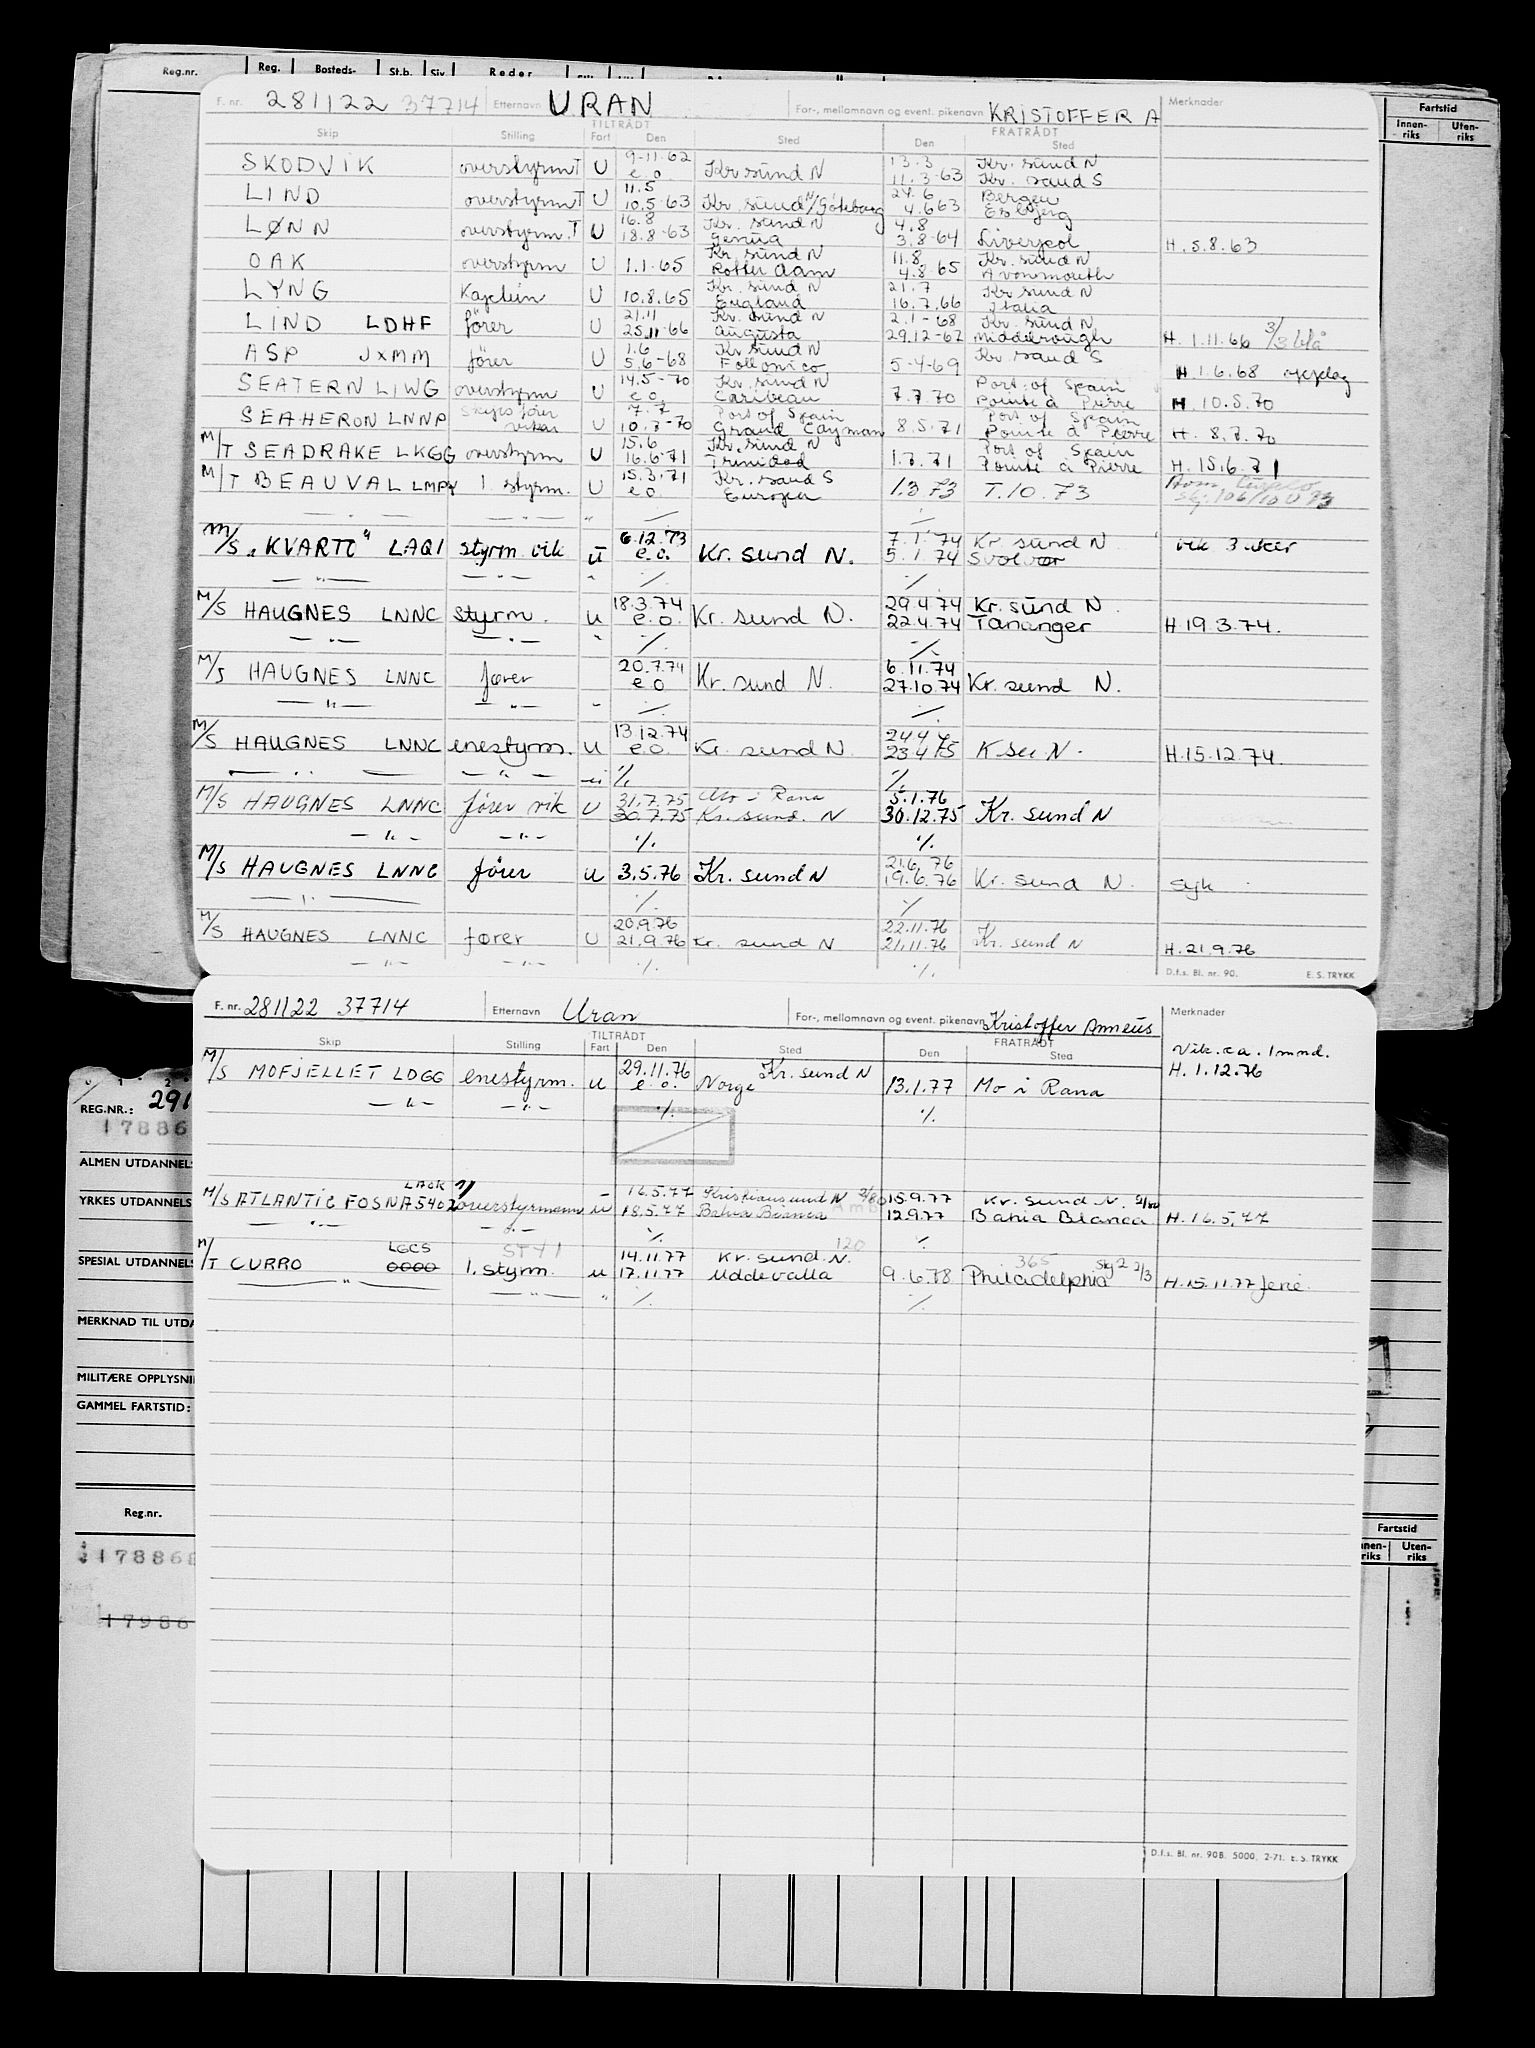 Reg.nr. Reg. Bosteds- St.b. Siv. Reder
Fartstid
Innen-riks Uten-riks
F. nr. 281122 37714 Etternavn URAN For-, mellomnavn og event. pikenavn KRISTOFFER A Merknader
TILTRÅDT FRATRÅDT
Skip Stilling Fart Den Sted Den Sted
9-11-62 13.3 Kr. sund N
SKODVIK overstyrm T U e.o. Kr sund N 11.3-63 Kr. sand S
11.5 24.6 Bergen
LIND overstyrm T U 10.5-63 Kr. sund N/Göteborg 4.663 Esbjerg
16.8 Kr. sund N 4.8
LØNN overstyrm. T U 18.8-63 Genua 3.8-64 Liverpool H. 5.8.63
Kr sund N 11.8 Kr. sund N
OAK overstyrm U 1.1-65 Rotterdam 4.8-65 Avonmouth
Kr. sund N 21.7 Kr sund N
LYNG Kaptein U 10.8.65 England 16.7.66 Italia
21.11 Kr. sund N 2.1-68 Kr. sund N
LIND LDHF fører U 25.11-66 Augusta 29.12-67 Middlerough H. 1.11.66 3/3 blå
1.6 Kr sund N Kr. sand S
ASP JXMM fører U 5.6-68 Follonico 5-4-69 H. 1.6.68
14.5-70 Kr. sund N Port of Spain
SEATERN LIWG overstyrm U e.o. Caribean 7.7.70 Pointe à Pierre H. 10.5.70
Skips fører 7.7 Port of Spain Port of Spain
SEAHERON LNNP vikar U 10.7-70 Grand Cayman 8.5.71 Pointe à Pierre H. 8.7.70
15.6 Kr. sund N Port of Spain
M/T SEADRAKE LKGG overstyrm U 16.6-71 Trinidad 1.7.71 Pointe à Pierre H. 15.6.71
15.3.71 Kr. sand S
M/T BEAUVAL LMPY 1. styrm. U e.o. Europa 1.3.73 T.10.73
— " — — " — " ./. ./.
6.12.73 7.1.74 Kr. sund N
M/S "KVARTO" LAQI styrm. vik u e.o. Kr. sund N. 5.1.74 Svolvær vik 3 uker
— " — — " — " ./. ./.
18.3.74 29.4.74 Kr. sund N.
M/S HAUGNES LNNC styrm. u e.o. Kr. sund N. 22.4.74 Tananger H.19.3.74.
— " — — " — " ./. ./.
20.7.74 6.11.74
M/S HAUGNES LNNC fører e.o Kr. sund N. 27.10.74 Kr. sund N.
— " — — " — " ./. ./.
13.12.74 24.4
M/S HAUGNES LNNC enestyrm. u e.o. Kr. sund N. 23.4.75 H.15.12.74.
— " — — " — " ./. ./.
31.7.75 Mo i Rana 5.1.76
M/S HAUGNES LNNC fører vik U 30.7.75 Kr. sund. N 30.12.75 Kr. sund N
— " — — " — ./. ./.
21.6.76
M/S HAUGNES LNNC fører u 3.5.76 Kr. sund N 19.6.76 Kr. sund N. syk
— " — ./. ./.
20.9.76 22.11.76
M/S HAUGNES LNNC fører U 21.9.76 Kr. sund N 21.11.76 Kr. sund N H.21.9.76
— " — — " — ./. ./.
D.f.s. Bl. nr. 90. E. S. TRYKK
F. nr. 281122 37714 Etternavn Uran For-, mellomnavn og event. pikenavn Kristoffer Anneus Merknader
TILTRÅDT FRATRÅDT
Skip Stilling Fart Den Sted Den Sted
Vik. ca. 1 mnd.
29.11.76 Kr. sund N H. 1.12.76
M/S MOFJELLET LDGG enestyrm. u e.o. Norge 13.1.77 Mo i Rana
— " — — " — ./. ./.
LACK 16.5.77 Kristiansund N 2/80 15.9.77 Kr. sund N. 2/80
M/S ATLANTIC FOSNA 5402 overstyrmann u 18.5.77 Bahia Blanca 12.9.77 Bahia Blanca H. 16.5.77
— " — — " — ./. ./.
LGCS STY1 14.11.77 Kr. sund. N. 120 365
M/T CURRO 0000 1. styrm. u 17.11.77 Uddevalla 9.6.78 Philadelphia H.15.11.77 ferie.
— " — — " — " ./. ./.
D.f.s. Bl. nr. 90B. 5000, 2-71. E. S. TRYKK
REG.NR.: 291
17886
ALMEN UTDANNELS
YRKES UTDANNELS
SPESIAL UTDANNELS
MERKNAD TIL UTDA
MILITÆRE OPPLYSNI
GAMMEL FARTSTID:
Reg.nr.
178868
17986
Fartstid
nnen-riks Uten-riks